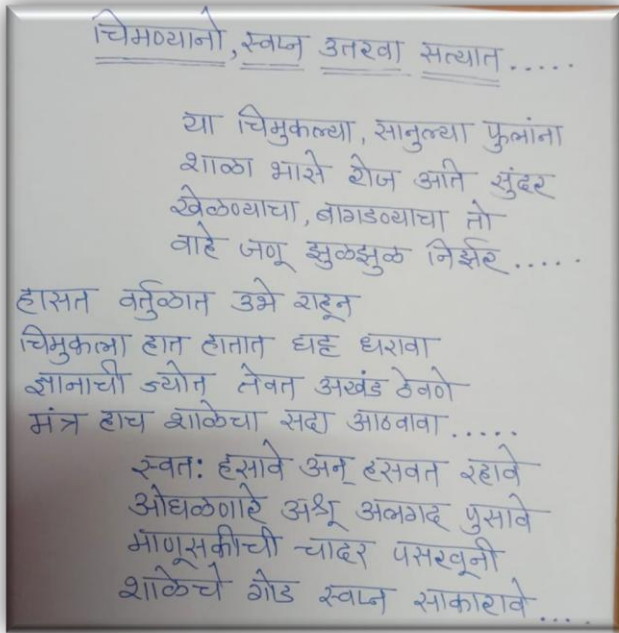 चिमण्यानो, स्वप्न उतरवा सत्यात.....
या चिमुकल्या, सानुल्या फुलांना
शाळा भासे रोज अति सुंदर
खेळण्याचा, बागडण्याचा तो
वाहे जणू झुळझुळ निर्झर.....
हासत वर्तुळात उभे राहून
चिमुकला हात हातात घट्ट धरावा
ज्ञानाची ज्योत तेवत अखंड ठेवणे
मंत्र हाच शाळेचा सदा आठवावा.....
स्वतः हसावे अन् हसवत रहावे
ओघळणारे अश्रू अलगद पुसावे
माणूसकीची चादर पसरवूनी
शाळेचे गोड स्वप्न साकारावे....